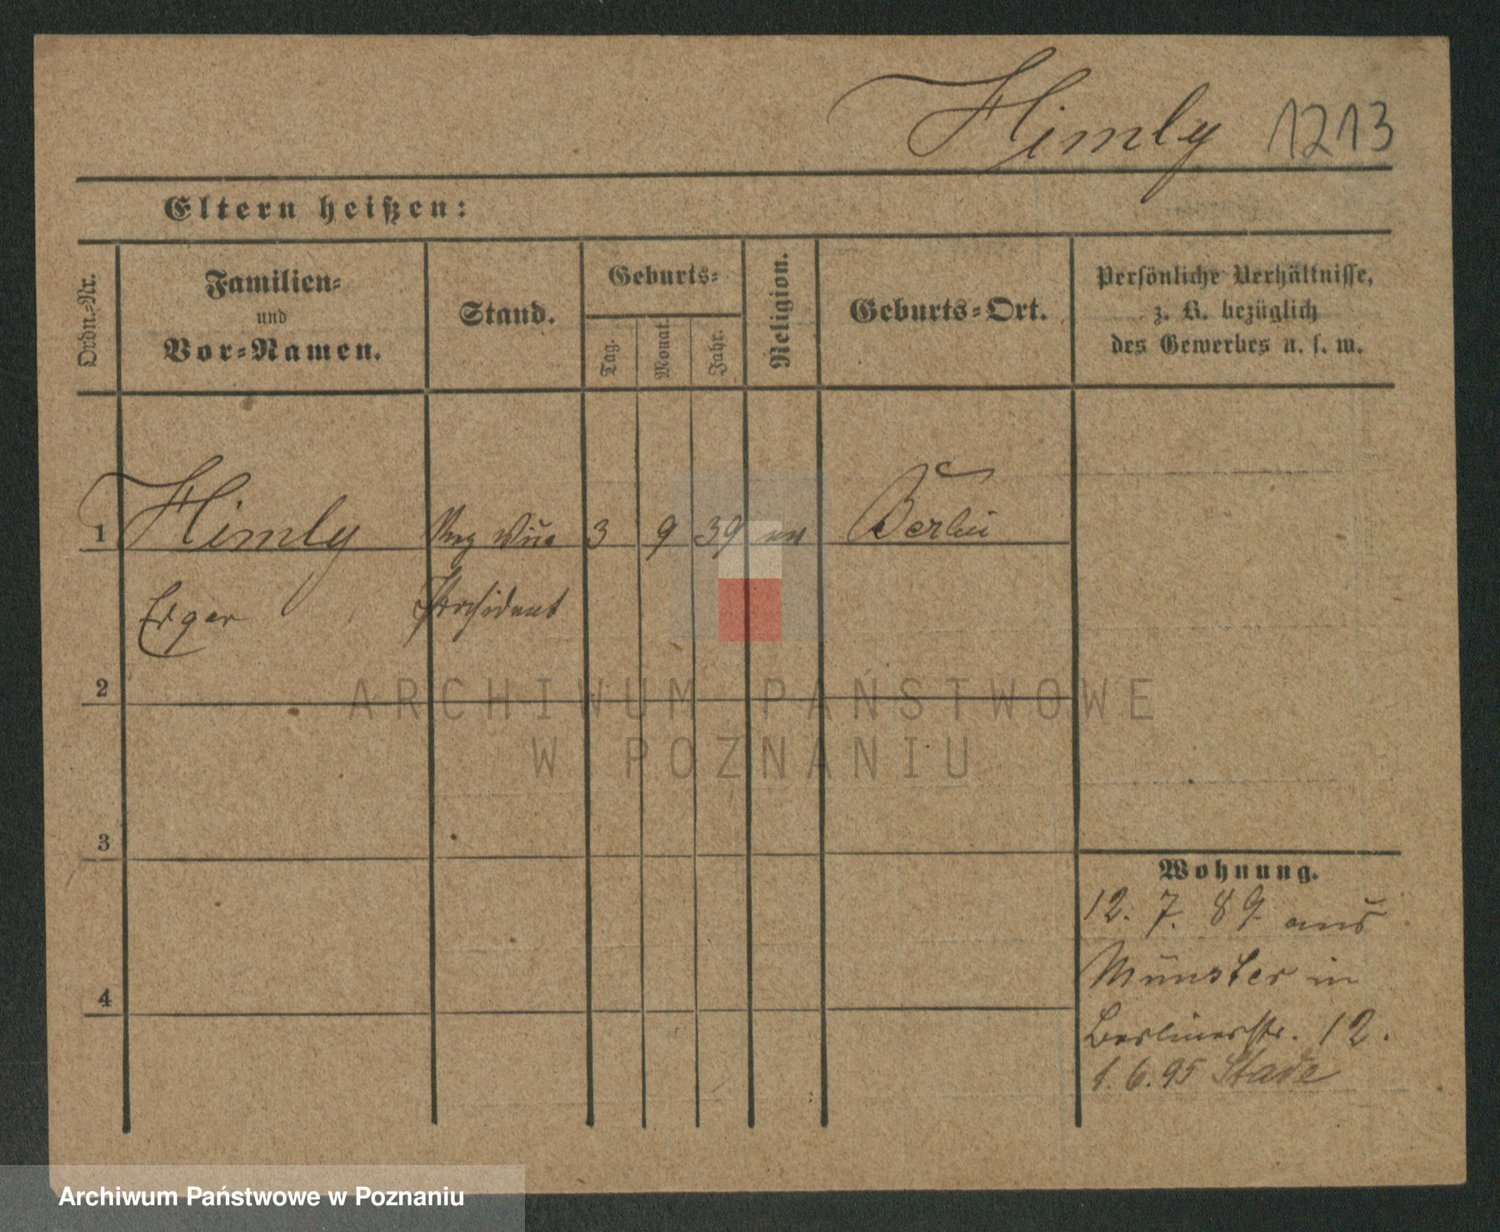 Himly 1213
Eltern heißen:
Ordn.-Nr.
Familien-
und
Vor-Namen.
Stand.
Geburts-
Tag.
Monat.
Jahr.
Religion.
Geburts-Ort.
Persönliche Verhältnisse,
z. B. bezüglich
des Gewerbes u. s. w.
1 Himly 3 9 39 ev Berlin
Präsident
2
ARCHIWUM PAŃSTWOWE
W POZNANIU
3
Wohnung.
12. 7. 89. aus
Münster in
4
Berlinerstr. 12.
1. 6. 95 Stade
Archiwum Państwowe w Poznaniu